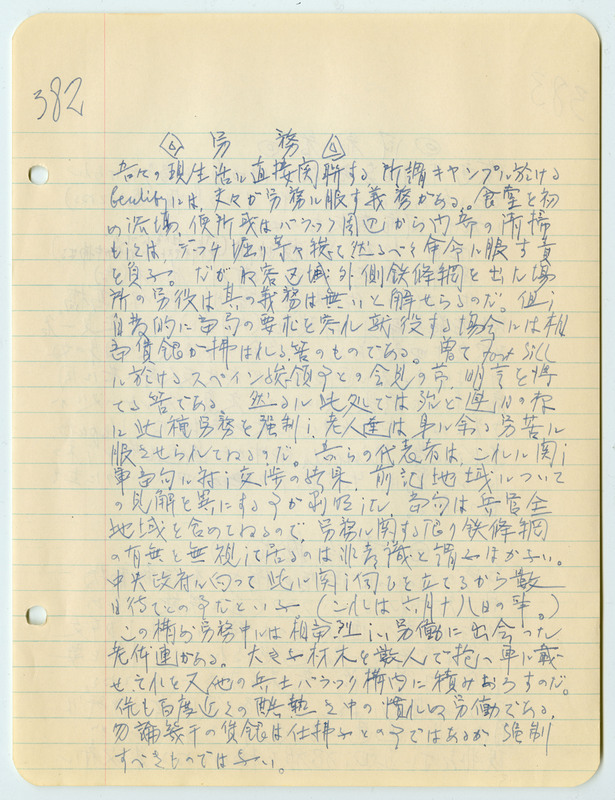 382
労務
吾々の現生活に直接関聯する所謂キャンプに於ける
には、夫々が労務に服す義務がある。食堂を初
め浴場、便所或はバラック周辺から内部の清掃
もしくはデッチ堀り等々総て然るべく命令に服す責
を負ふ。だが収容区域外側鉄條網を出た場
所の労役は其の義務は無いと解せらるのだ。但し
自発的に当局の要求を容れ就役する場合には相
当賃銀が拂はれる筈のものである。曽て Fort Sill
に於けるスペイン総領事との会見の節、明言を得
てる筈である。然るに此処では殆ど連日の様
に此種労務を強制し、老人達は身に余る労苦に
服させられてゐるのだ。吾らの代表者は、これに関し
軍当局に対し交渉の結果、前記地域について
の見解を異にする事が判明した。当局は兵営全
地域を含めてゐるので、労務に関する限り鉄條網
の有無を無視して居るのは非常識と謂ふほかない。
中央政府に向って此に関し伺ひを立てるから数
日待てとの事だといふ (これは六月十八日の事。)
この様な労務中には相当烈しい労働に出会った
老体連がある。大きな材木を数人で抱へ車に載
せ、それを又他の兵士バラック構内に積みおろすのだ。
然も百度近くの酷熱を中の慣れぬ労働である。
勿論若干の賃銀は仕拂ふとの事ではあるが、強制
すべきものではない。